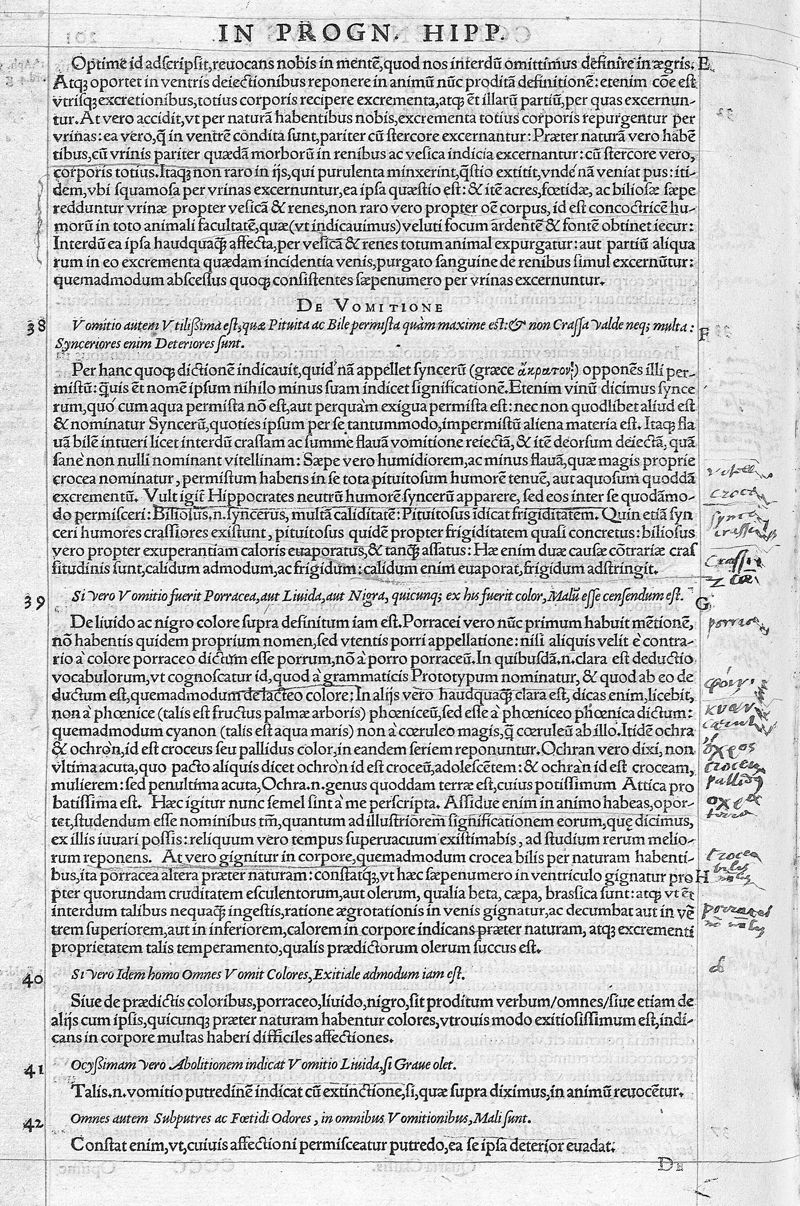 IN PROGN. HIPP.
Optime id adscripsit, reuocans nobis in mentē, quod nos interdū omittimus definire in ægris. E
Atq; oportet in ventris deiectionibus reponere in animū nūc proditā definitionē: etenim cōe est
vtrisq; excretionibus, totius corporis recipere excrementa, atq; ēt illarū partiū, per quas excernun-
tur. At vero accidit, vt per naturā habentibus nobis, excrementa totius corporis repurgentur per
vrinas: ea vero, q̄ in ventrē condita sunt, pariter cū stercore excernantur: Præter naturā vero habē
tibus, cū vrinis pariter quædā morborū in renibus ac vesica indicia excernantur: cū stercore vero,
corporis totius. Itaq; non raro in ijs, qui purulenta minxerint, q̄stio extitit, vnde nā veniat pus: iti-
dem, vbi squamosa per vrinas excernuntur, ea ipsa quæstio est: & itē acres, fœtidæ, ac biliosæ sæpe
redduntur vrinæ propter vesicā & renes, non raro vero propter oē corpus, id est concoctricē hu-
morū in toto animali facultatē, quæ (vt indicauimus) veluti focum ardentē & fontē obtinet iecur:
Interdū ea ipsa haudquaq̄ affecta, per vesicā & renes totum animal expurgatur: aut partiū aliqua
rum in eo excrementa quædam incidentia venis, purgato sanguine de renibus simul excernūtur:
quemadmodum abscessus quoq; consistentes sæpenumero per vrinas excernuntur.
DE VOMITIONE
38 Vomitio autem Vtilissima est, quæ Pituita ac Bile permista quàm maxime est: & non Crassa valde neq; multa: F
Synceriores enim Deteriores sunt.
Per hanc quoq; dictionē indicauit, quid nā appellet syncerū (græce ἄκρατον) opponēs illi per-
mistū: q̄uis ēt nomē ipsum nihilo minus suam indicet significationē. Etenim vinū dicimus synce
rum, quo cum aqua permista nō est, aut perquàm exigua permista est: nec non quodlibet aliud est
& nominatur Syncerū, quoties ipsum per se tantummodo, impermistū aliena materia est. Itaq; fla
uā bilē intueri licet interdū crassam ac summe flauā vomitione reiectā, & itē deorsum deiectā, quā
sane non nulli nominant vitellinam: Sæpe vero humidiorem, ac minus flauā, quæ magis proprie
crocea nominatur, permistum habens in se tota pituitosum humorē tenuē, aut aquosum quoddā
excrementū. Vult igit̄ Hippocrates neutrū humorē syncerū apparere, sed eos inter se quodāmo-
do permisceri: Biliosus, n. syncerus, multā caliditatē: Pituitosus īdicat frigiditatem. Quin etiā syn
ceri humores crassiores existunt, pituitosus quidē propter frigiditatem quasi concretus: biliosus
vero propter exuperantiam caloris euaporatus, & tanq̄ assatus: Hæ enim duæ causæ cōtrariæ cras
situdinis sunt, calidum admodum, ac frigidum: calidum enim euaporat, frigidum adstringit.
39 Si vero Vomitio fuerit Porracea, aut Liuida, aut Nigra, quicunq; ex his fuerit color, Malū esse censendum est. G
De liuido ac nigro colore supra definitum iam est. Porracei vero nūc primum habuit mētionē,
nō habentis quidem proprium nomen, sed vtentis porri appellatione: nisi aliquis velit è contra-
rio à colore porraceo dictum esse porrum, nō à porro porraceū. In quibusdā. n. clara est deductio
vocabulorum, vt cognoscatur id, quod à grammaticis Prototypum nominatur, & quod ab eo de
ductum est, quemadmodum de lacteo colore: In alijs vero haudquaq̄ clara est, dicas enim, licebit,
non à phœnice (talis est fructus palmæ arboris) phœniceū, sed esse à phœniceo phœnica dictum:
quemadmodum cyanon (talis est aqua maris) non à cœruleo magis, q̄ cœruleū ab illo. Itidē ochra
& ochròn, id est croceus seu pallidus color, in eandem seriem reponuntur. Ochran vero dixi, non
vltima acuta, quo pacto aliquis dicet ochròn id est croceū, adolescētem: & ochràn id est croceam,
mulierem: sed penultima acuta, Ochra. n. genus quoddam terræ est, cuius potissimum Attica pro
batissima est. Hæc igitur nunc semel sint à me perscripta. Assidue enim in animo habeas, opor-
tet, studendum esse nominibus tm̄, quantum ad illustriorem significationem eorum, quę dicimus,
ex illis iuuari possis: reliquum vero tempus superuacuum existimabis, ad studium rerum melio-
rum reponens. At vero gignitur in corpore, quemadmodum crocea bilis per naturam habenti-
bus, ita porracea altera præter naturam: constatq;, vt hæc sæpenumero in ventriculo gignatur pro H
pter quorundam cruditatem esculentorum, aut olerum, qualia beta, cæpa, brassica sunt: atq; vt ēt
interdum talibus nequaq̄ ingestis, ratione ægrotationis in venis gignatur, ac decumbat aut in vē
trem superiorem, aut in inferiorem, calorem in corpore indicans præter naturam, atq; excrementi
proprietatem talis temperamento, qualis prædictorum olerum succus est.
40 Si vero Idem homo Omnes Vomit Colores, Exitiale admodum iam est.
Siue de prædictis coloribus, porraceo, liuido, nigro, sit proditum verbum/omnes/siue etiam de
alijs cum ipsis, quicunq; præter naturam habentur colores, vtrouis modo exitiosissimum est, indi-
cans in corpore multas haberi difficiles affectiones.
41 Ocyssimam vero Abolitionem indicat Vomitio Liuida, si Graue olet.
Talis. n. vomitio putredinē indicat cū extinctione, si, quæ supra diximus, in animū reuocētur.
42 Omnes autem Subputres ac Fœtidi Odores, in omnibus Vomitionibus, Mali sunt.
Constat enim, vt, cuiuis affectioni permisceatur putredo, ea se ipsa deterior euadat.
DE